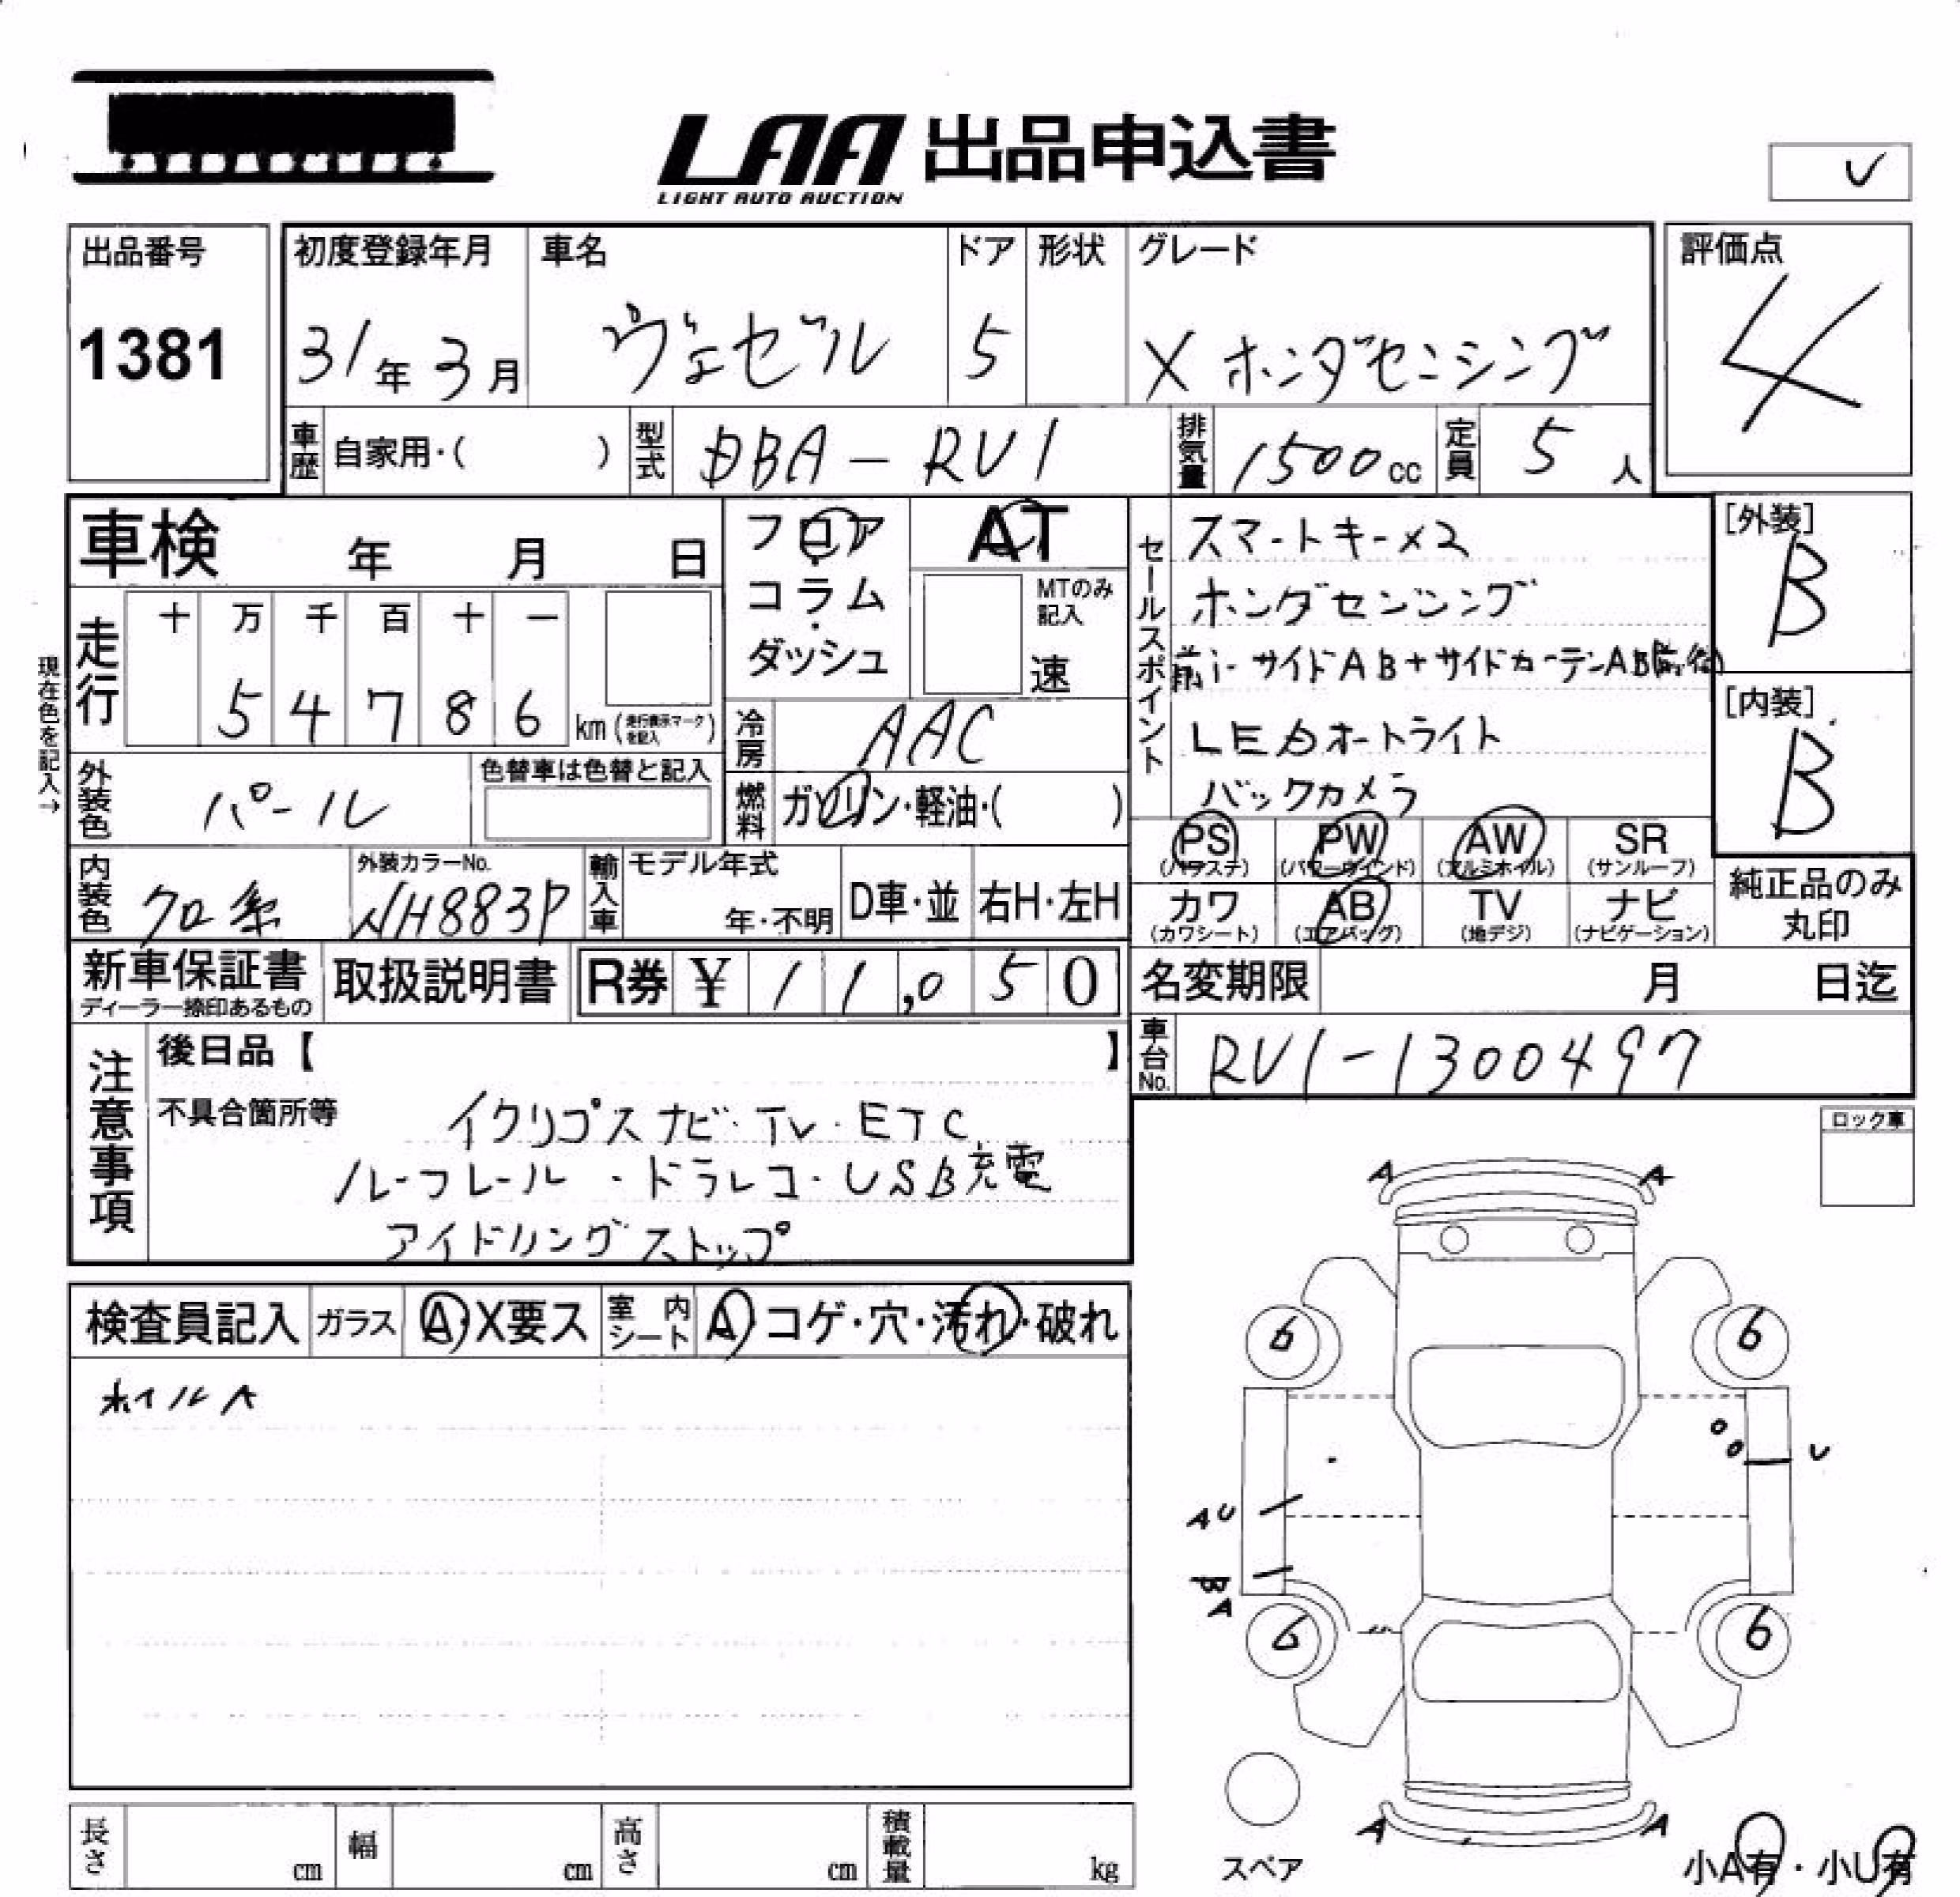 LAA 出品申込書
LIGHT AUTO AUCTION
出品番号
1381
初度登録年月
31年 3月
車名
ヴェゼル
ドア
5
形状
グレード
X ホンダセンシング
評価点
4
車歴
自家用・( )
型式
DBA-RV1
排気量
1500cc
定員
5人
車検 年 月 日
フロア・コラム・ダッシュ
AT
MTのみ記入
速
セールスポイント
スマートキー×2
ホンダセンシング
前i-サイドAB+サイドカーテンAB前後
LEDオートライト
バックカメラ
[外装]
B
[内装]
B
現在色を記入→
走行
十 万 千 百 十 一
5 4 7 8 6 km (走行表示マークを記入)
冷房
AAC
外装色
パール
色替車は色替と記入
燃料
ガソリン・軽油・( )
PS (パワステ)
PW (パワーウインド)
AW (アルミホイル)
SR (サンルーフ)
カワ (カワシート)
AB (エアバッグ)
TV (地デジ)
ナビ (ナビゲーション)
純正品のみ丸印
内装色
クロ系
外装カラーNo.
NH883P
輸入車
モデル年式
年・不明
D車・並
右H・左H
新車保証書
ディーラー捺印あるもの
取扱説明書
R券 ¥ 11,050
名変期限 月 日迄
車台No.
RV1-1300497
注意事項
後日品【 】
不具合箇所等
イクリプスナビ・TV・ETC
ルーフレール・ドラレコ・USB充電
アイドリングストップ
ロック車
検査員記入
ガラス
A・X要ス
室内シート
A・コゲ・穴・汚れ・破れ
ホイルA
A A
6 6
U
AU
B
A
6 6
A A
スペア
小A有・小U有
長さ cm
幅 cm
高さ cm
積載量 kg